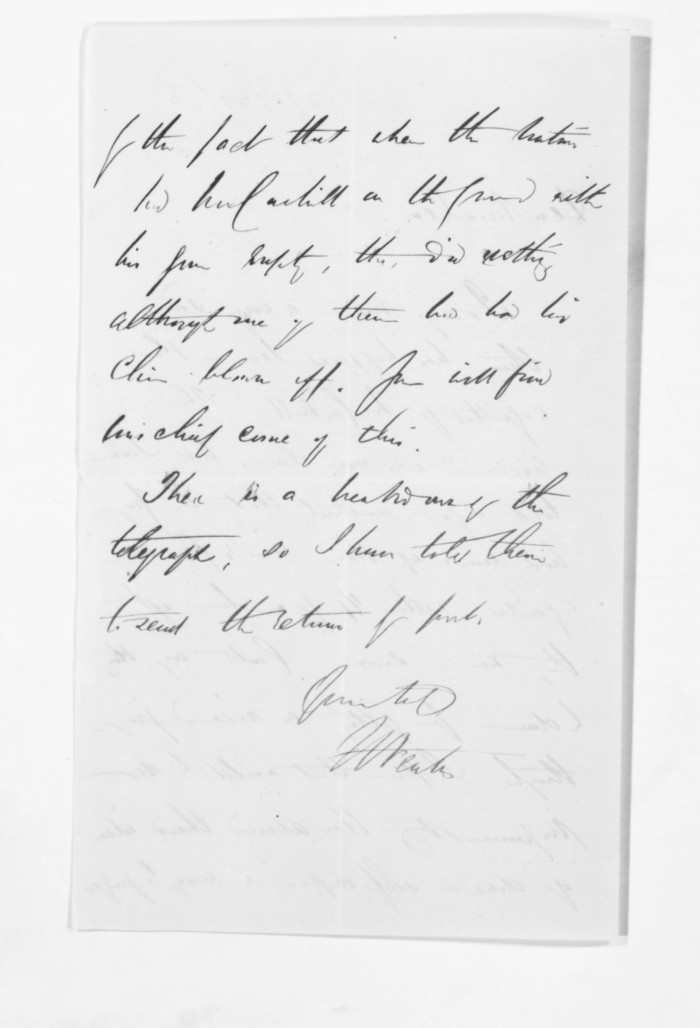 of the fact that when the natives
had McCaskill on the ground with
his gun empty, they did nothing
although one of them had had his
chin blown off. You will find
mischief come of this.
There is a breakdown of the
telegraph, so I have told them
to send the return by post.
Yours truly